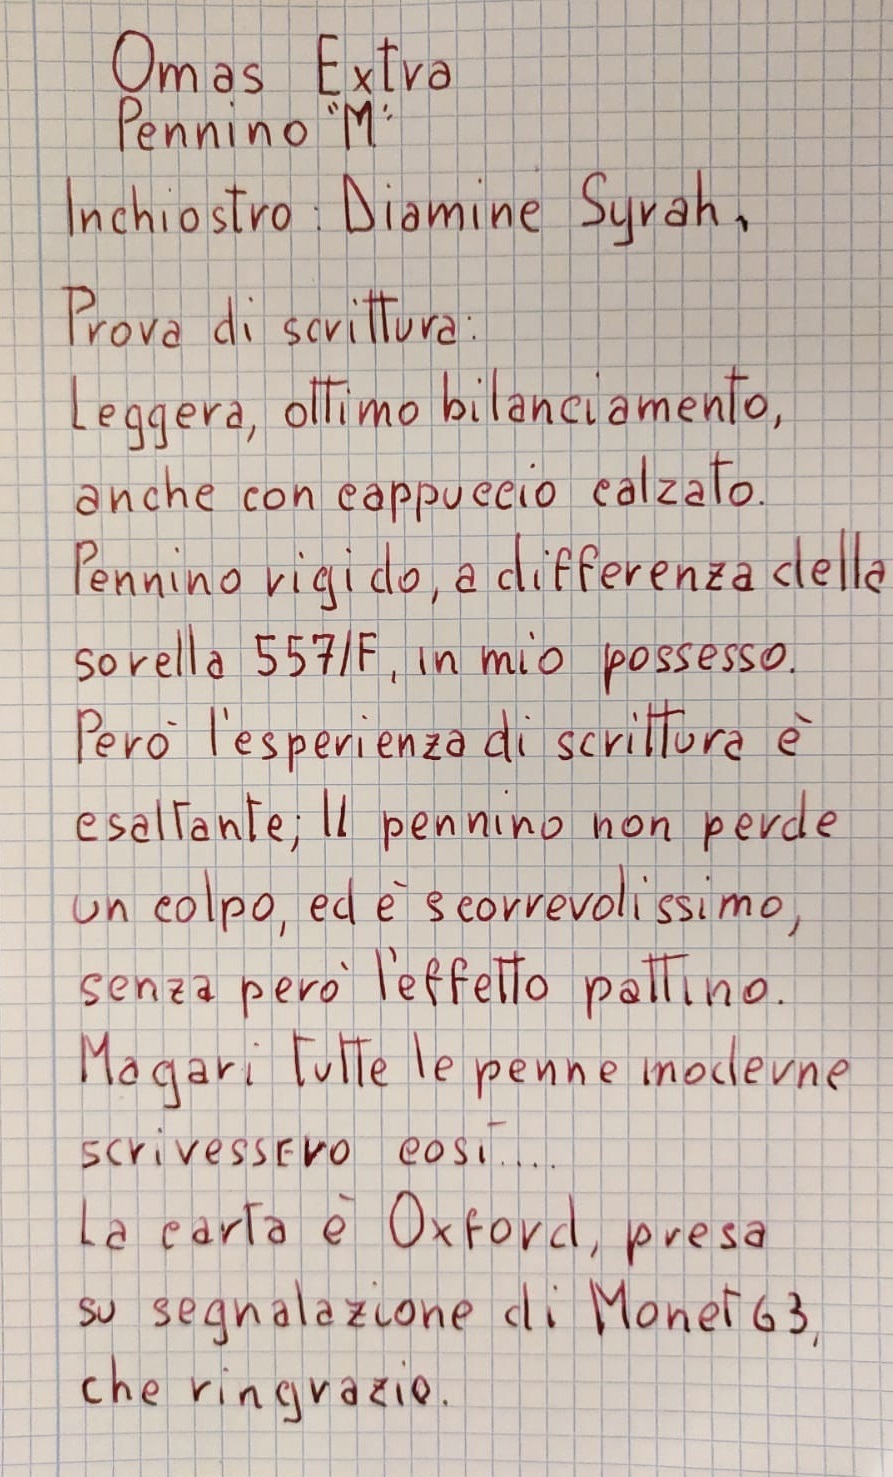 Omas Extra
Pennino "M".
Inchiostro: Diamine Syrah.
Prova di scrittura:
Leggera, ottimo bilanciamento,
anche con cappuccio calzato.
Pennino rigido, a differenza della
sorella 557/F, in mio possesso.
Però l'esperienza di scrittura è
esaltante; Il pennino non perde
un colpo, ed è scorrevolissimo,
senza però l'effetto pattino.
Magari tutte le penne moderne
scrivessero così....
La carta è Oxford, presa
su segnalazione di Monet63,
che ringrazio.